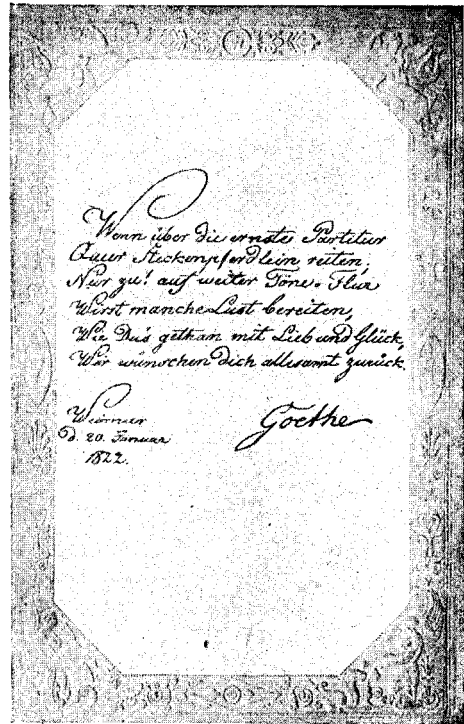 Wenn über die ernste Partitur
Quer Steckenpferdlein reiten,
Nur zu! auf weiter Töne-Flur
Wirst manche Lust bereiten,
Wie Du's gethan mit Lieb und Glück,
Wir wünschen Dich allesamt zurück.
Weimar
d. 20. Januar
1822.
Goethe